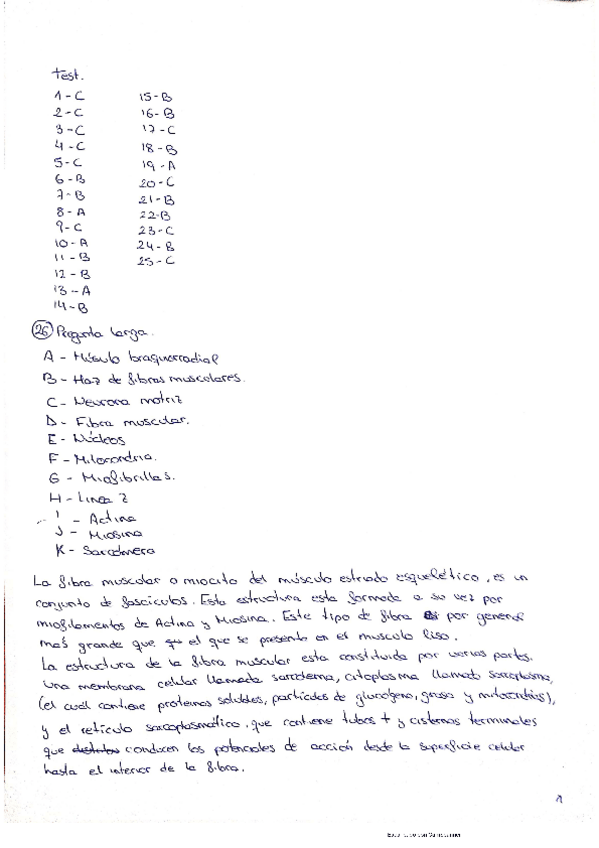 Test.
1-C
2-C
3-C
4-C
5-C
6-B
7-B
8-A
9-C
10-A
11-B
12-B
13-A
14-B
15-B
16-B
17-C
18-B
19-A
20-C
21-B
22-B
23-C
24-B
25-C
26 Pregunta larga.
A - Músculo braquiorradial
B - Haz de fibras musculares.
C - Neurona motriz
D - Fibra muscular.
E - Núcleos
F - Mitocondria.
G - Miofibrillas.
H - Linea Z
I - Actina
J - Miosina
K - Sarcómero
La fibra muscular o miocito del músculo estriado esquelético, es un
conjunto de fascículos. Esta estructura esta formada a su vez por
miofilamentos de Actina y Miosina. Este tipo de fibra por general
más grande que el que se presenta en el musculo liso.
La estructura de la fibra muscular esta constituida por varias partes.
una membrana celular llamada sarcolema, citoplasma llamado sarcoplasma,
(el cuál contiene proteinas solubles, partículas de glucógeno, grasa y mitocondrias),
y el retículo sarcoplasmático, que contiene tubos t y cisternas terminales
que conducen los potenciales de acción desde la superficie celular
hasta el interior de la fibra.
1